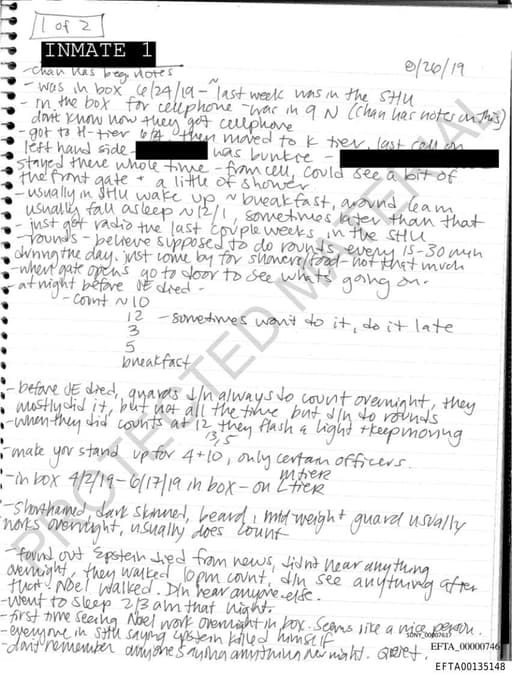 1 of 2
INMATE 1
8/26/19
- Chan has beg notes
- was in box 6/24/19 - ~ last week was in the SHU
- in the box for cellphone - was in 9 N (Chan has notes on this)
don't know how they got cellphone
- got to H-tier 6/4, then moved to K tier, last cell on
left hand side - was bunkie -
stayed there whole time - from cell, could see a bit of
the front gate + a little of shower
- usually in SHU wake up ~ breakfast, around 6am
usually fall asleep ~ 12/1, sometimes later than that
- just got radio the last couple weeks in the SHU
- rounds - believe supposed to do rounds every 15-30 min
during the day. just come by for showers/food - not that much
- when gate opens go to door to see what's going on.
- at night before JE died -
- count ~ 10
12 - sometimes won't do it, do it late
3
5
breakfast
- before JE died, guards d/n always do count overnight, they
mostly did it, but not all the time but d/n do rounds
- when they did counts at 12 they flash a light + keep moving
13,5
- make you stand up for 4+10, only certain officers.
- in box 4/2/19 - 6/17/19 in box - on L tier
M tier
- shorthaired, dark skinned, beard, mid weight guard usually
works overnight, usually does count
- found out Epstein died from news, didn't hear anything
overnight, they walked 10pm count, d/n see anything after
that. Noel walked. D/n hear anyone else.
- went to sleep 2/3 am that night.
- first time seeing Noel work overnight in box. Seems like a nice person.
- everyone in SHU saying Epstein killed himself
- don't remember anyone saying anything per night. Quiet.
SDNY_00007617
EFTA_00000746
EFTA00135148
PROTECTED MATERIAL